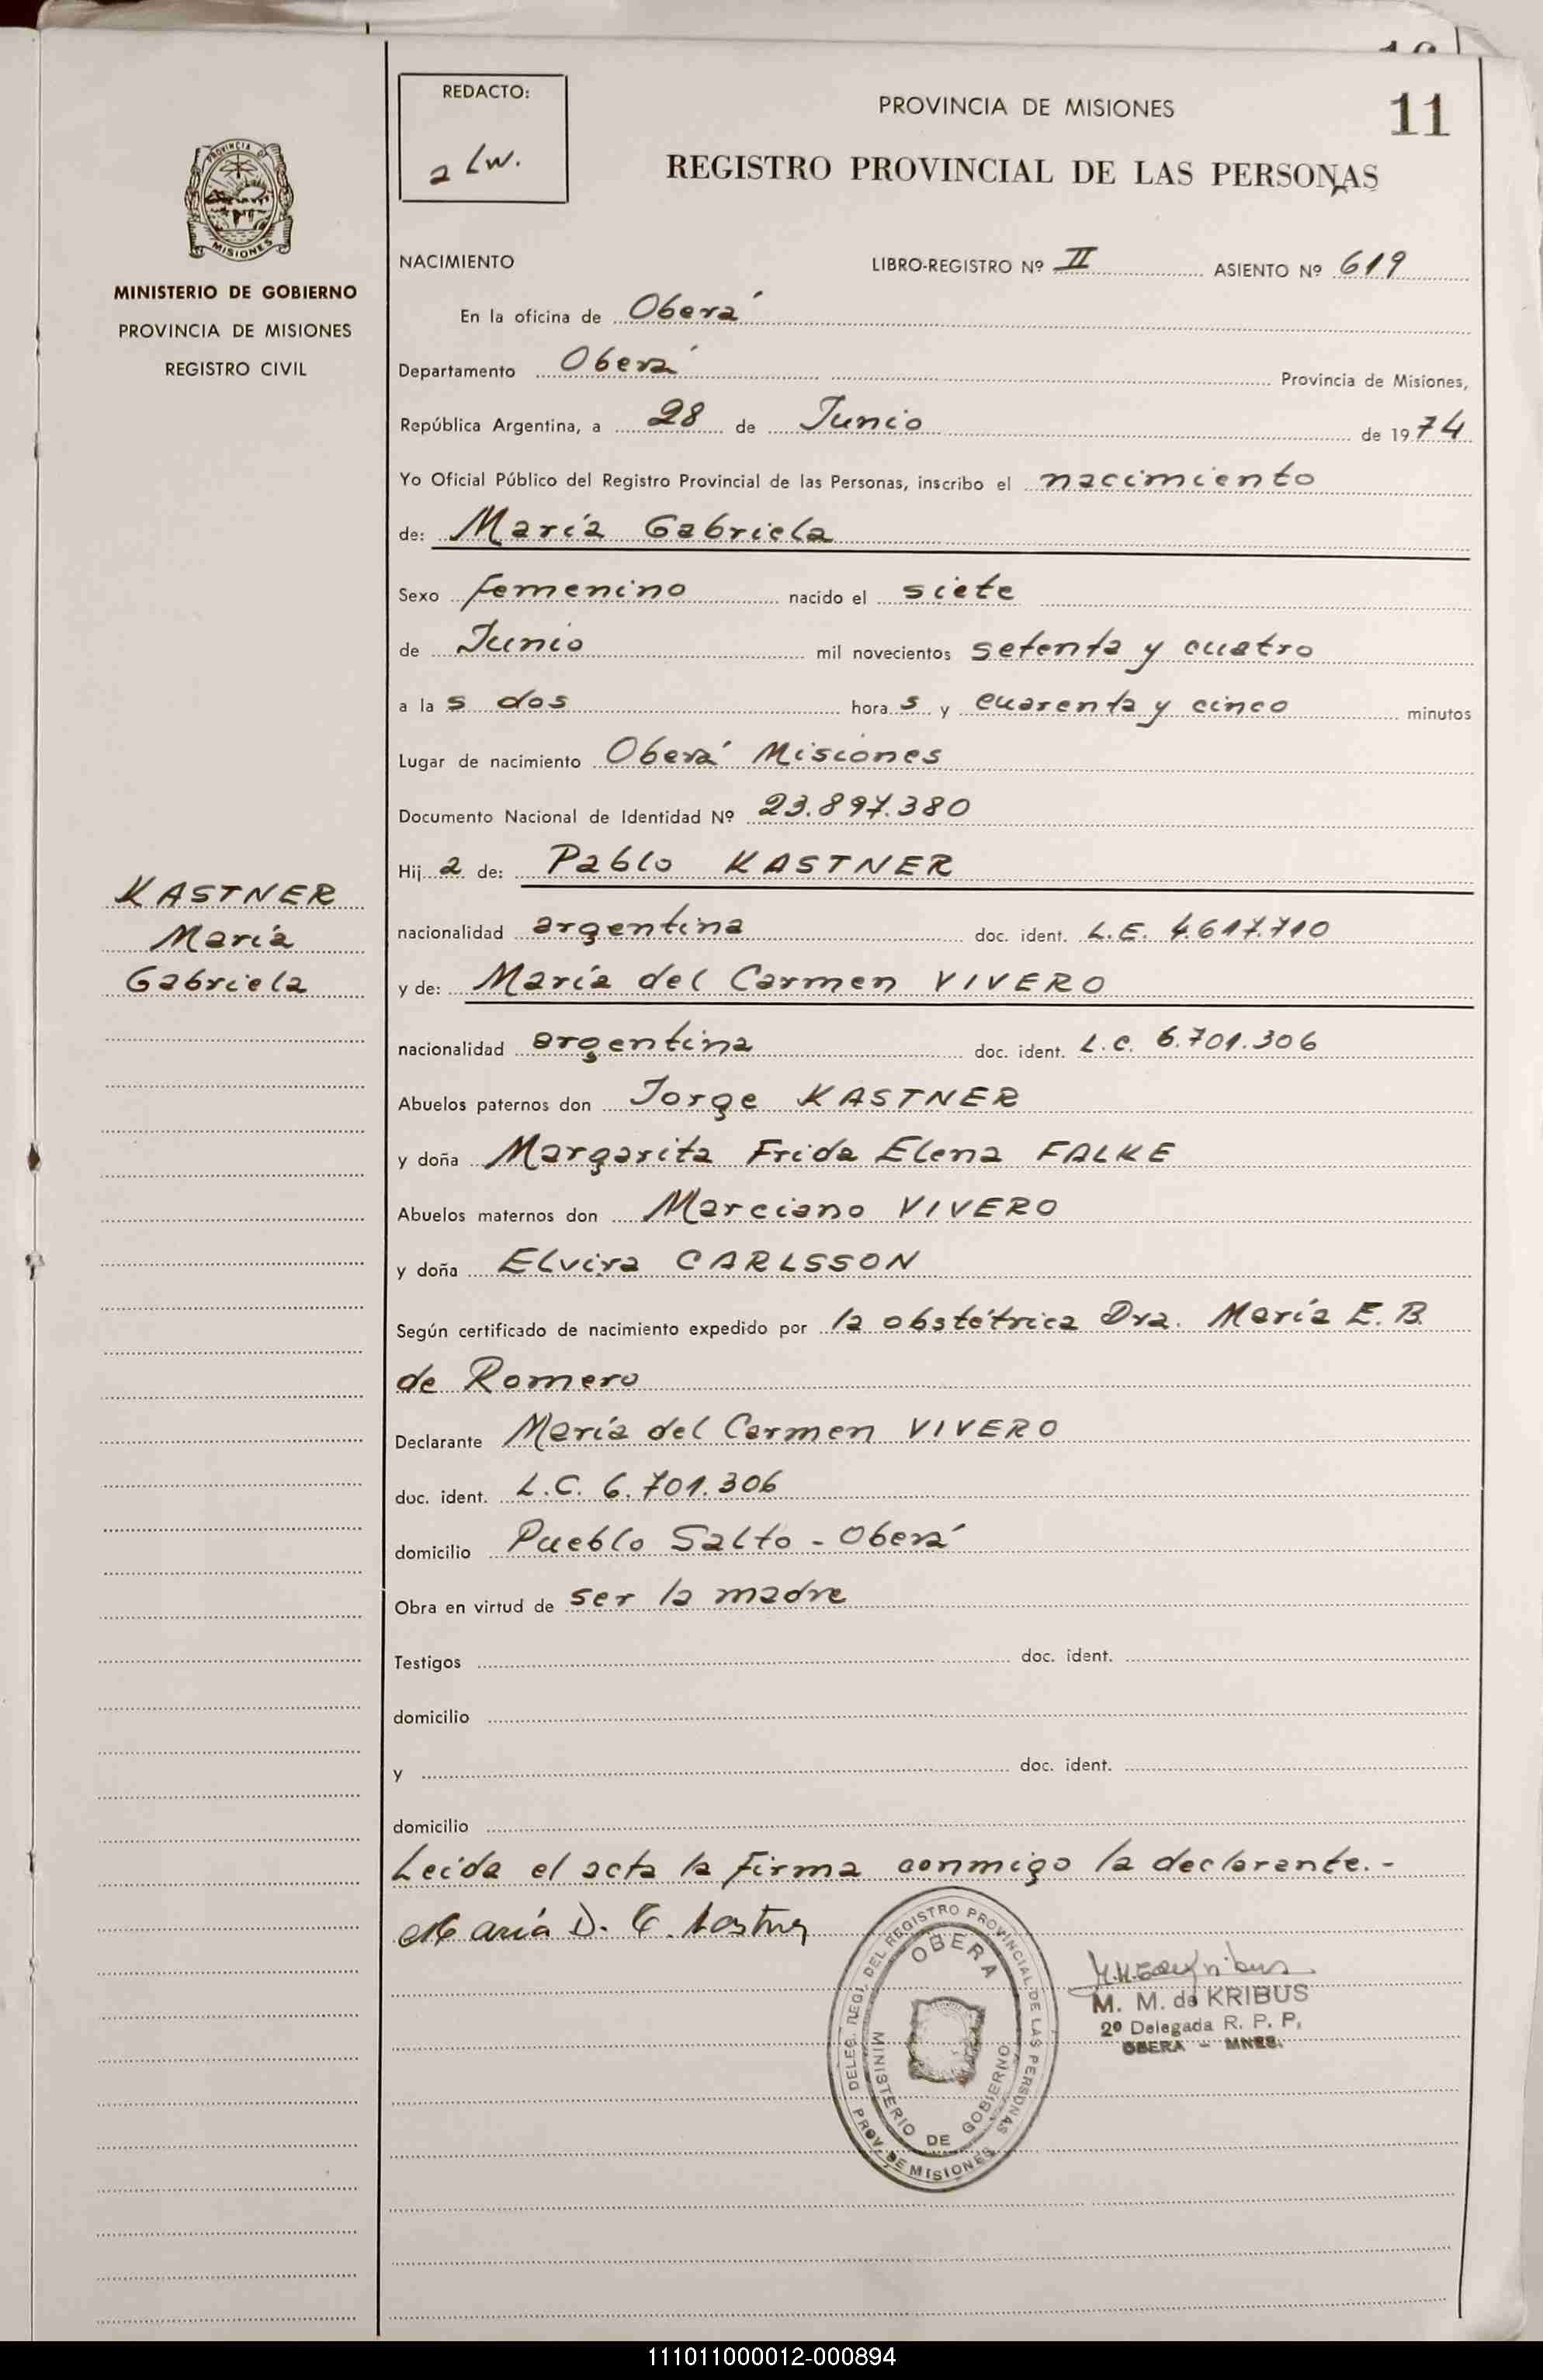 REDACTO:
a Lw.
PROVINCIA DE MISIONES
11
REGISTRO PROVINCIAL DE LAS PERSONAS
PROVINCIA DE
MISIONES
MINISTERIO DE GOBIERNO
PROVINCIA DE MISIONES
REGISTRO CIVIL
NACIMIENTO LIBRO-REGISTRO Nº II ASIENTO Nº 619
En la oficina de Oberá
Departamento Oberá Provincia de Misiones,
República Argentina, a 28 de Junio de 1974
Yo Oficial Público del Registro Provincial de las Personas, inscribo el nacimiento
de: María Gabriela
Sexo femenino nacido el siete
de Junio mil novecientos setenta y cuatro
a la s dos hora s y cuarenta y cinco minutos
Lugar de nacimiento Oberá Misiones
Documento Nacional de Identidad Nº 23.897.380
Hij a de: Pablo KASTNER
KASTNER
María
Gabriela
nacionalidad argentina doc. ident. L.E. 4.617.710
y de: María del Carmen VIVERO
nacionalidad argentina doc. ident. L.C. 6.701.306
Abuelos paternos don Jorge KASTNER
y doña Margarita Frida Elena FALKE
Abuelos maternos don Marciano VIVERO
y doña Elvira CARLSSON
Según certificado de nacimiento expedido por la obstétrica Dra. María E. B.
de Romero
Declarante María del Carmen VIVERO
doc. ident. L.C. 6.701.306
domicilio Pueblo Salto - Oberá
Obra en virtud de ser la madre
Testigos doc. ident.
domicilio
y doc. ident.
domicilio
Leída el acta la firma conmigo la declarante.-
María D. C. Kastner
DELEG. REGI. DEL REGISTRO PROVINCIAL DE LAS PERSONAS
PROV. DE MISIONES
OBERA
MINISTERIO DE GOBIERNO
M. M. de KRIBUS
2º Delegada R. P. P.
OBERA - MNES.
111011000012-000894